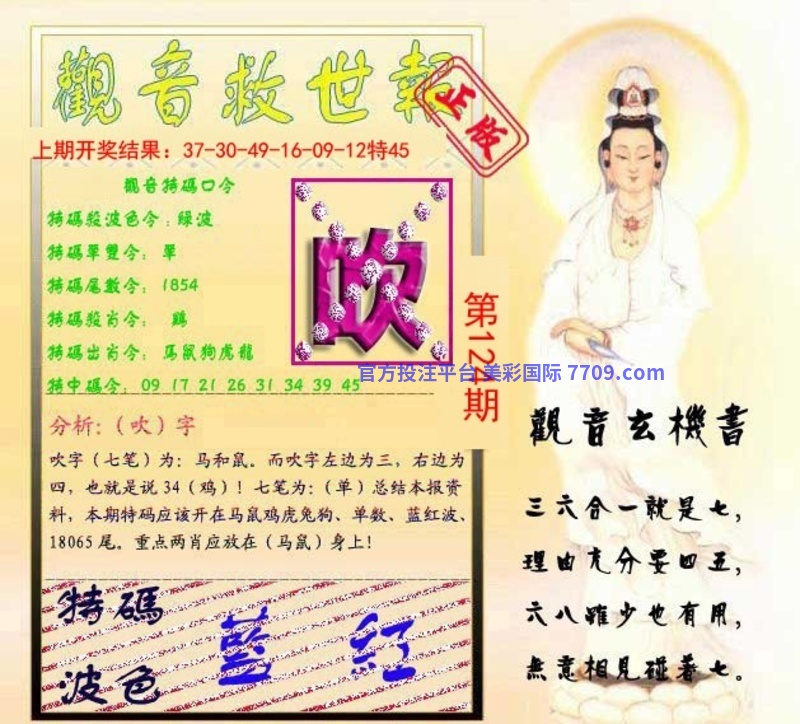 觀音救世報
正版
上期开奖结果：37-30-49-16-09-12特45
觀音特碼口令
特碼殺波色令：綠波
特碼單雙令：單
特碼尾數令：1854
特碼殺肖令：鷄
特碼出肖令：馬鼠狗虎龍
特中碼令：09 17 21 26 31 34 39 45
吹
第124期
官方投注平台 美彩国际 7709.com
分析：（吹）字
吹字（七笔）为：马和鼠。而吹字左边为三，右边为
四，也就是说34（鸡）！七笔为：（单）总结本报资
料，本期特码应该开在马鼠鸡虎兔狗、单数、蓝红波、
18065尾。重点两肖应放在（马鼠）身上！
特碼
波色
藍 紅
觀音玄機書
三六合一就是七，
理由充分要四五，
六八雖少也有用，
無意相見碰着七。